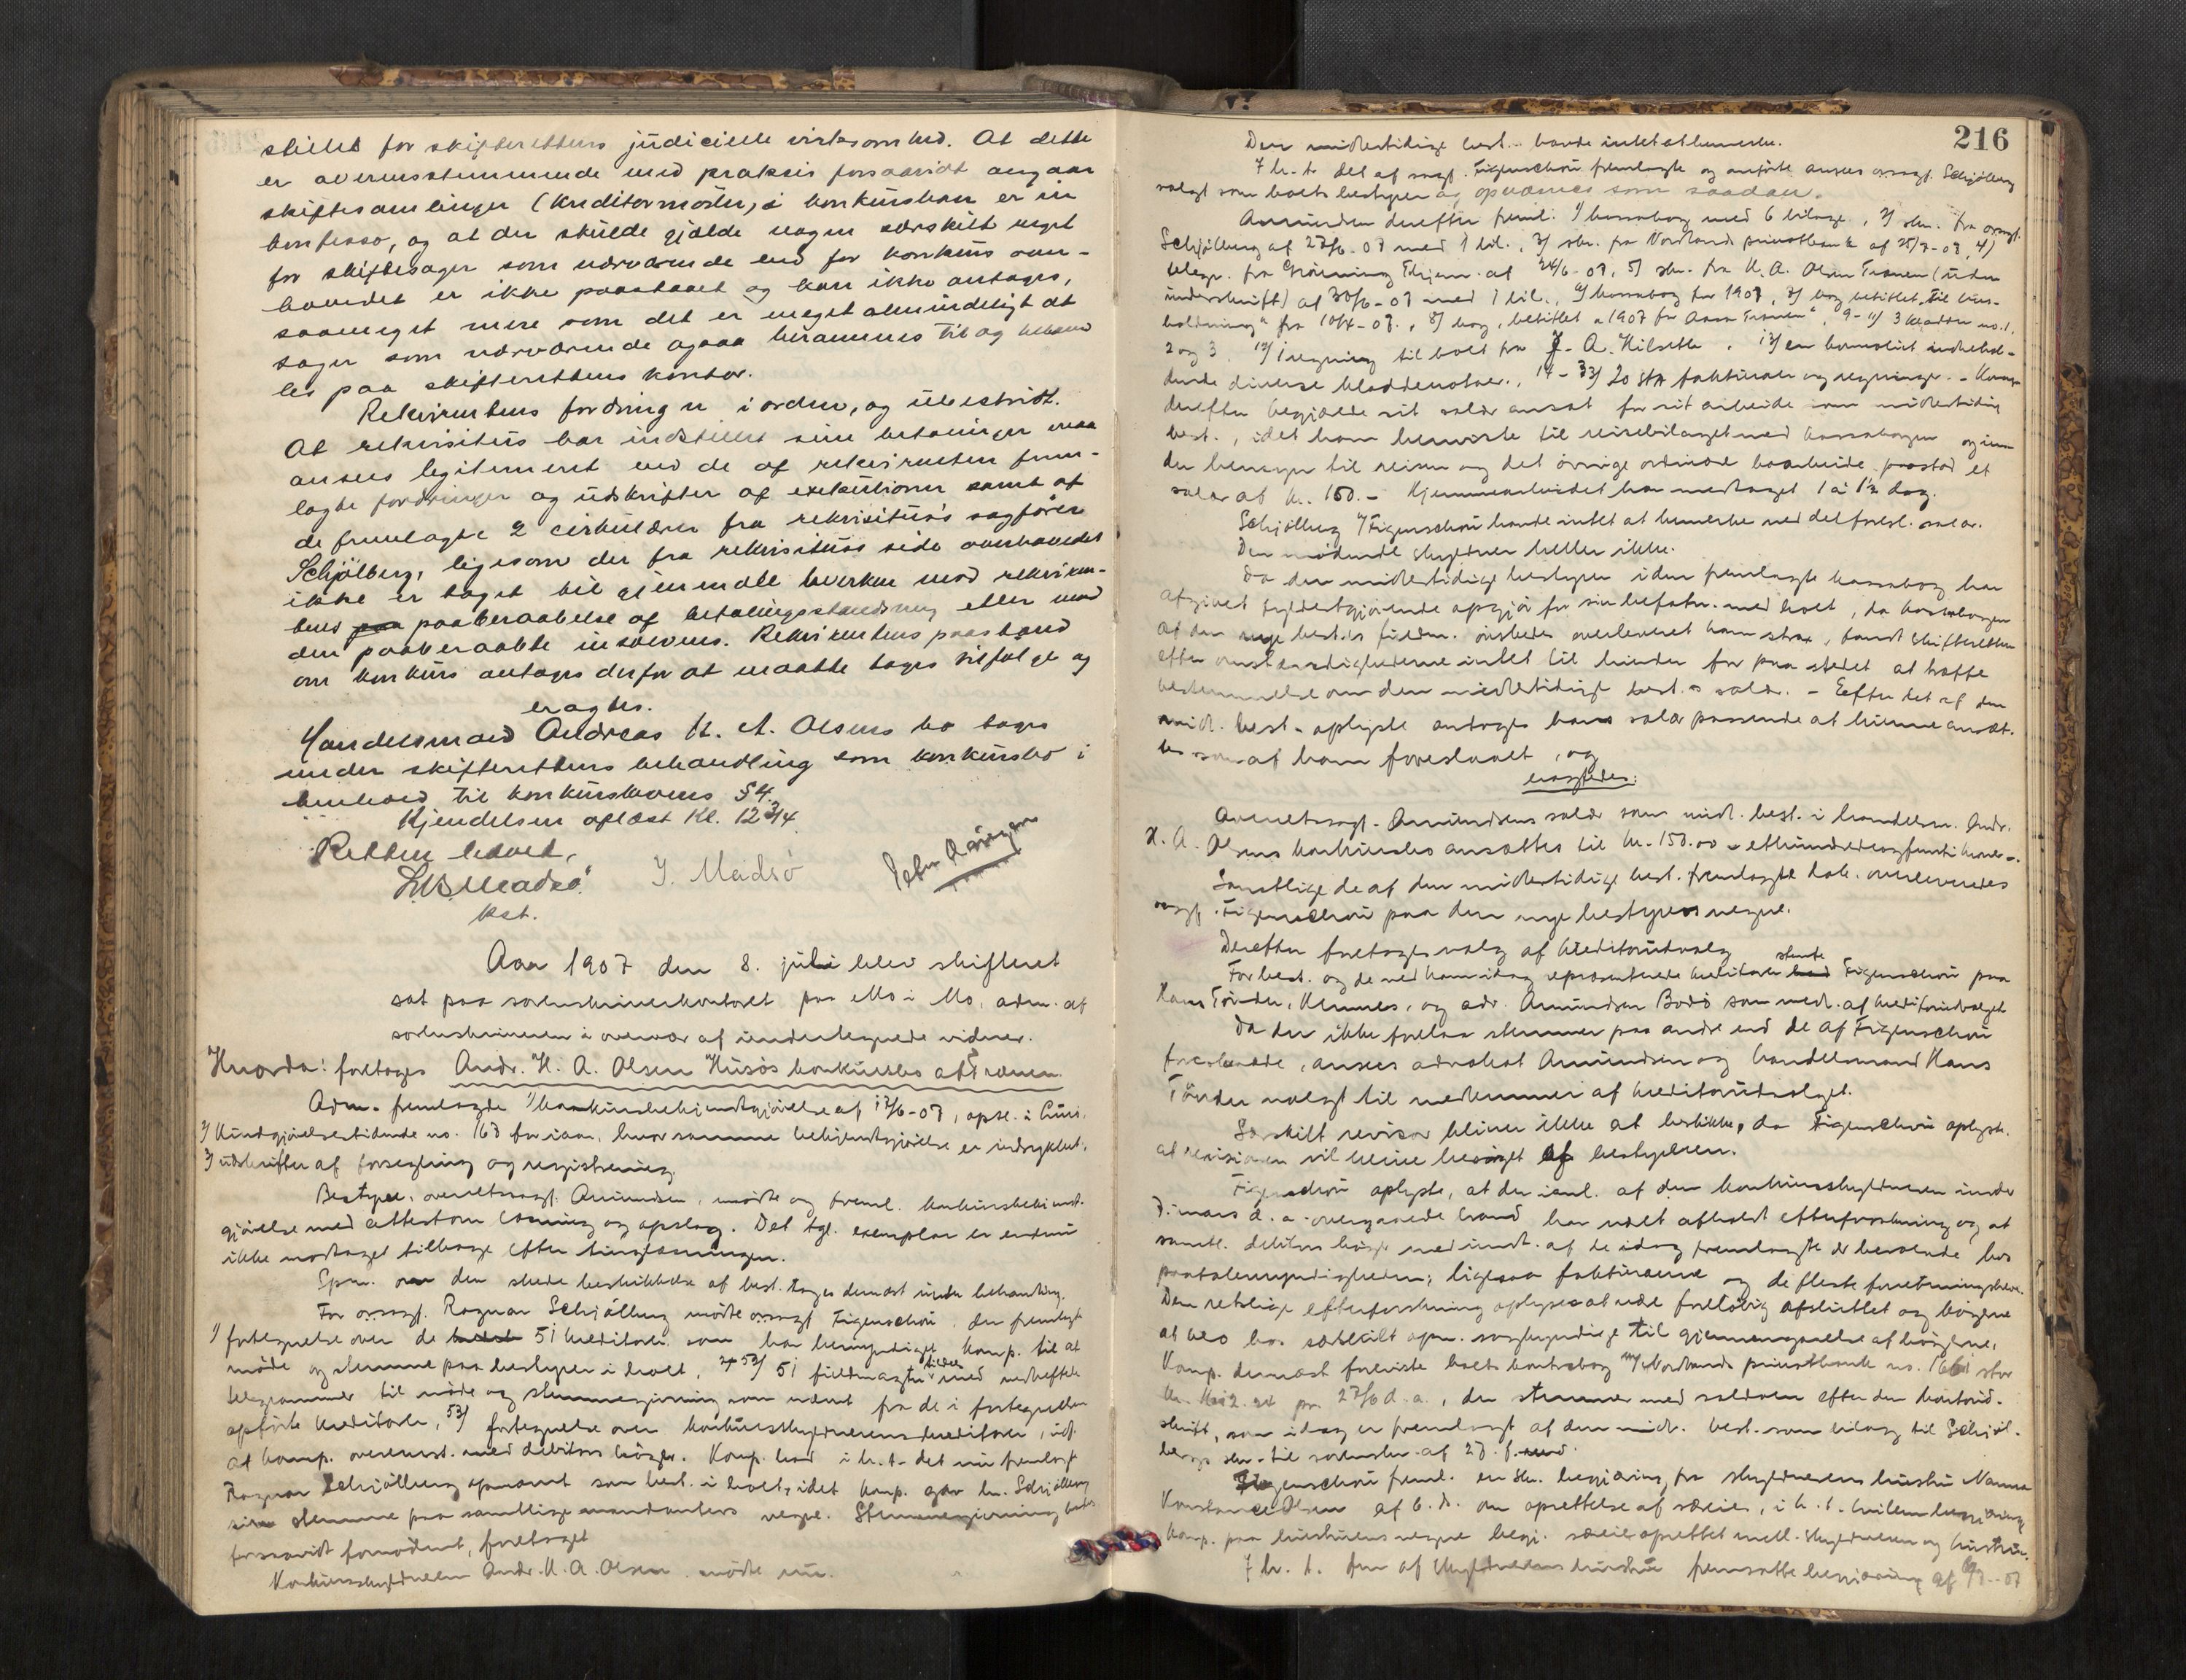 stillet for skifterettens judicielle virksomhed. At dette
er overensstemmende med praksis forsaavidt angaar
skiftesamlinger (kreditormöder) i konkursboer er in
confesso, og at der skulde gjælde nogen særskilt regel
for skiftesager som nærværende end for konkurs over-
hovedet er ikke paastaaet og kan ikke antages,
saameget mere som det er meget almindeligt at
sager som nærværende ogsaa berammes til og behand
les paa skifterettens kontor.
Rekvirentens fordring er i orden, og ubestridt.
At rekvisitus har indstillet sine betalinger maa
ansees legitimeret ved de af rekvirenten frem-
lagte fordringer og udskrifter af exekutioner samt af
de fremlagte 2 cirkulærer fra rekvisitus's sagförer
Schjölberg, ligesom der fra rekvisitus's side overhovedet
ikke er taget til gjenmæle hverken mod rekviren-
tens paaberaabelse af betalingsstandsning eller mod
den paaberaabte insolvens. Rekvirentens paastand
om konkurs antages derfor at maatte tages tilfölge og
eragtes.
Handelsmand Andreas H. A. Olsens bo tages
under skifterettens behandling som konkursbo i
henhold til konkurslovens § 4.
Kjendelsen oplæst Kl. 12 3/4
Retten hævet,
Madsö
kst.
J. Madsö
Aar 1907 den 8. juli blev skifteret
sat paa sorenskriverkontoret paa Mo i Mo, adm. af
sorenskriveren i overvær af undertegnede vidner.
Hvorda: foretoges Andr. H. A. Olsen Husös konkursbo af Trænen.
Adm. fremlagde 1) konkursbekjendtgjörelse af 12/6-07, opsl. i huset
2) Kundgjörelsestidende no. 160 for iaar, hvor samme bekjendtgjörelse er indrykket,
3) udskrifter af forsegling og registrering.
Bestyrer, overretssagf. Amundsen, mödte og freml. konkursbekjendt-
gjörelse med attest om læsning og opslag. Det tgl. exemplar er endnu
ikke modtaget tilbage efter tinglæsningen.
Spm. om den skede beskikkelse af best. toges dernæst under behandling.
For orsagf. Ragnar Schjölberg mödte orsagf. Figenschou, der fremlagde
1) fortegnelse over de 51 kreditorer som har bemyndiget komp. til at
möde og stemme paa bestyrer i boet, 2-52) 51 fuldmagter tildels med vedheftede
telegrammer til möde og stemmegivning som nævnt fra de i fortegnelsen
opförte kreditorer, 53) fortegnelse over konkursskyldnerens kreditorer, udf.
af komp. overenst. med debitors böger. Komp. bad i h. t. det nu fremlagte
Ragnar Schjölberg opnævnt som best. i boet, idet komp. gav hr. Schjölberg
sin stemme paa samtlige mandanters vegne. Stemmegivning
forsaavidt fornödent, foretaget
Konkursskyldneren Andr. H. A. Olsen mödte nu.
216
Den midlertidige best. havde intet at bemerke.
I h. t. det af sagf. Figenschou fremlagte og anförte ansees orsagf. Schjölberg
valgt som boets bestyrer og opnævnes som saadan.
Amundsen derefter freml. 1) kassabog med 6 bilage, 2) skr. fra orsagf.
Schjölberg af 27/6-07 med 1 bil., 3) skr. fra Nordlands privatbank af 25/7-07, 4)
telegr. fra Grönning Thjem. af 24/6-07, 5) skr. fra H. A. Olsen Trænen (uden
underskrift) af 30/6-07 med 1 bil., 6) kassabog for 1907, 7) bog betitlet "Til hus-
holdning" fra 10/4-07, 8) bog, betitlet "1907 for Aasa Trænen", 9-11) 3 kladder no. 1,
2 og 3, 12) 1 regning til boet fra J. A. Hilsette, 13) en konvolut indehol-
dende diverse kladdenotaer, 14-33) 20 stk fakturaer og regninger. - Komp.
derefter begjærede sit salær ansat for sit arbeide som midlertidig
best., idet han henviste til reisebilaget med kassabogen og un
der hensyn til reisen og det övrige ordinære boarbeide paastod et
salær af kr. 150.- Hjemmearbeidet har medtaget 1 à 1½ dag.
Schjölberg v/ Figenschou havde intet at bemerke ved det foresl. salær.
Den mödende skyldner heller ikke.
Da den midlertidige bestyrer i den fremlagte kassabog har
afgivet fyldestgjörende opgjör for sin befatn. med boet, da kassabogen
af den nye best.s fuldm. önskedes overleveret ham strax, fandt skifteretten
efter omstændighederne intet til hinder for paa stedet at træffe
bestemmelse om den midlertidige best.s salær. - Efter det af den
midl. best. oplyste antages hans salær passende at kunne ansæt-
tes som af ham foreslaaet, og
eragtedes:
Overretssagf. Amundsens salær som midl. best. i handelsm. Andr.
H. A. Olsens konkursbo ansættes til kr. 150.00 - ethundredeogfemti kroner -.
Samtlige de af den midlertidige best. fremlagte dok. overleveredes
orsagf. Figenschou paa den nye bestyrers vegne.
Derefter foretoges valg af kreditorudvalg
For best. og de ved ham idag repræsenterede kreditorer stemte Figenschou paa
Hans Tönder, Hemnes, og adv. Amundsen Bodö som medl. af kreditorudvalget
Da der ikke forelaa stemmer paa andre end de af Figenschou
foreslaaede, ansees advokat Amundsen og handelsmand Hans
Tönder valgt til medlemmer af kreditorudvalget.
Særskilt revisor bliver ikke at beskikke, da Figenschou oplyste,
at revisionen vil blive besörget af bestyreren.
Figenschou oplyste, at der ianl. af den konkursskyldneren under
7. mars d. a. overgaaede brand har været afholdt efterforskning og at
samtl. debitors böger med undt. af de idag fremlagte er beroende hos
paatalemyndigheden, ligesaa fakturaerne og de fleste forretningsbreve.
Den retslige efterforskning oplyses at være foreløbig afsluttet og bögerne
at bero hos særskilt opn. sagkyndige til gjennemgaaelse af bögerne.
Komp. dernæst foreviste boets kontrabog m/ Nordlands privatbank no. 1661 stor
kr. pr. 27/6 d. a., der stemmer med saldoen efter den kontoud-
skrift, som idag er fremlagt af den midl. best. som bilag til Schjöl-
bergs skr. til sorenskr. af 27. f. md.
Figenschou freml. en skr. begjæring fra skyldnerens hustru Nanna
Konstance Olsen af 6. ds. om oprettelse af særeie, i h. t. hvilken begjæring
komp. paa hustruens vegne begj. særeie oprettet mell. skyldneren og hustru.
I h. t. den af skyldnerens hustru fremsatte begjæring af 6/7-07